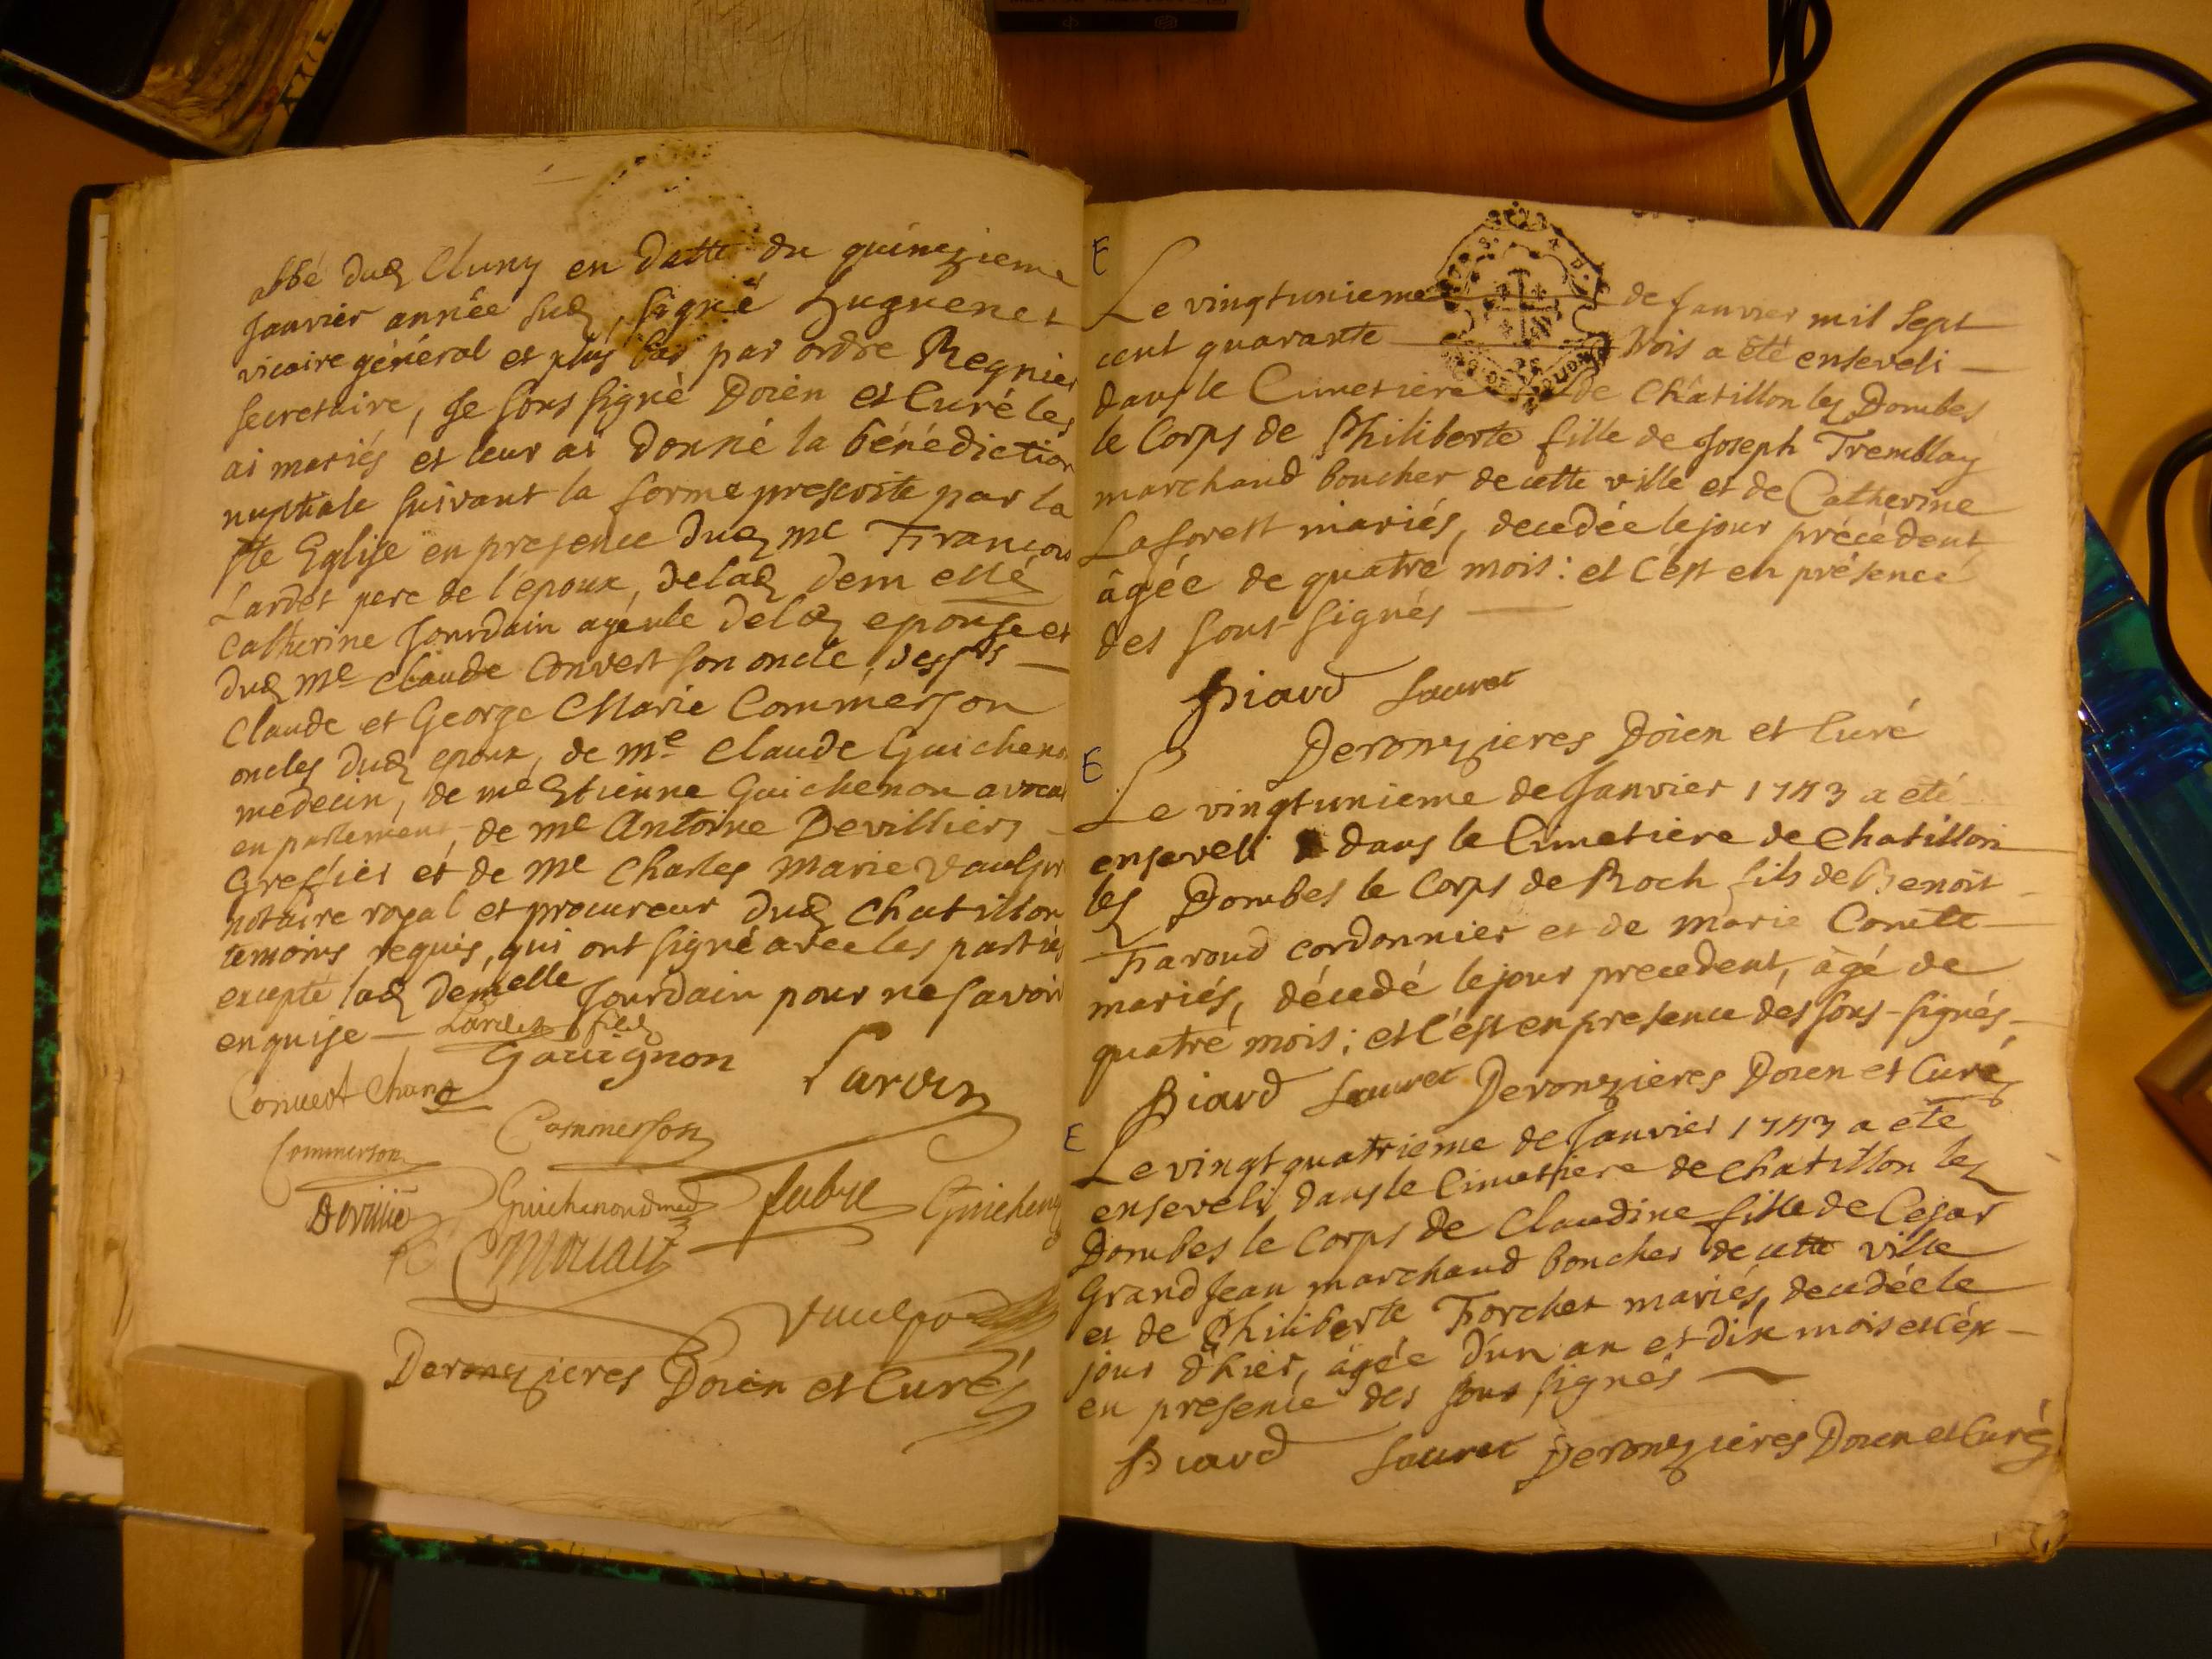 abbé dud Cluny en datte du quinzieme
Janvier année sud, signé Huguenet
vicaire général et plus bas par ordre Regnier
secretaire, Je sous signé Doien et Curé les
ai mariés et leur ai donné la bénédiction
nuptiale suivant la forme prescrite par la
ste Eglise en presence dud me François
Lardet pere de l'epoux, de lad dem elle
Catherine Jourdain ayéule de lad epouse et
dud me claude Convert son oncle, des srs
Claude et George Marie Commerson
oncles dud epoux, de me Claude Guichenon
medecin, de me Etienne Guichenon avocat
en parlement, de me Antoine Devilliers
Greffier et de me Charles Marie Vaulpré
notaire royal et procureur dud Chatillon
temoins requis, qui ont signé avec les parties
excepté lad demelle Jourdain pour ne savoir
enquise — Lardet fils
Gauvignon
Convert Lardet
Commerson
Commerson
Deville Guichenon dmed Febvre Guichenon
Derongieres Doien et Curé
E
Le vingtunieme de Janvier mil sept
cent quarante trois a été enseveli
dans le Cimetiere de Châtillon les Dombes
le Corps de Philiberte fille de Joseph Tremblay
marchand boucher de cette ville et de Catherine
Laforest mariés, decedée le jour précédent
âgée de quatre mois : et c'est en présence
des sous-signés
Biard Sauret
Derongieres Doien et Curé
E
Le vingtunieme de Janvier 1743 a eté
enseveli dans le Cimetiere de Chatillon
les Dombes le Corps de Roch fils de Benoit
Faroud cordonnier et de Marie Comte
mariés, décédé le jour precedent, âgé de
quatre mois ; et c'est en presence des sous-signés
Biard Sauret Derongieres Doien et Curé
E
Le vingt quatrieme de Janvier 1743 a eté
enseveli dans le Cimetiere de Chatillon les
Dombes le Corps de Claudine fille de Cesar
Grand Jean marchand boucher de cette ville
et de Philiberte Forchet mariés, decedée le
jour d'hier, âgée d'un an et dix mois et c'ést
en presence des sous signés
Biard Sauret Derongieres Doien et Curé